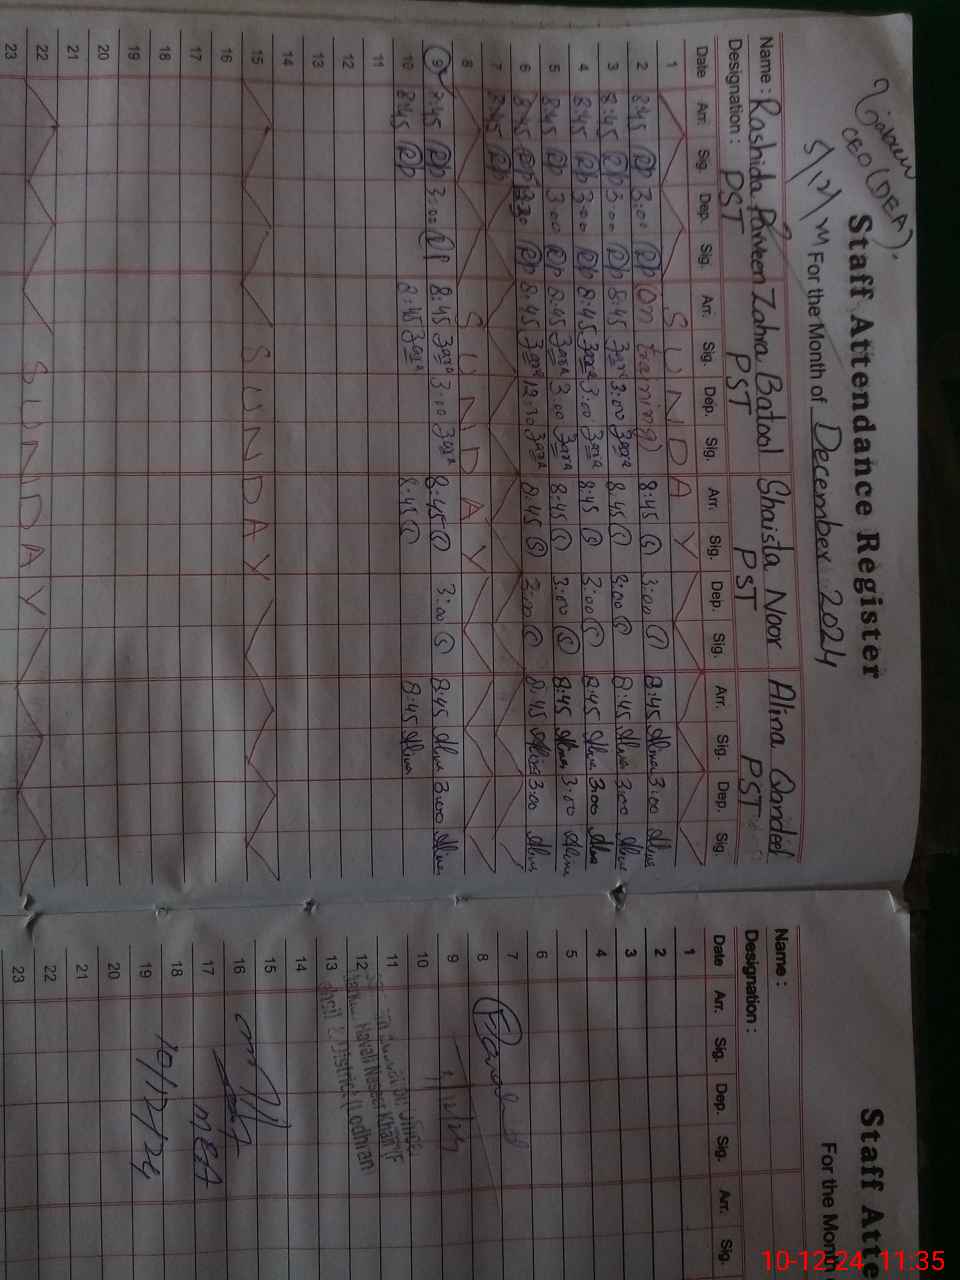 CEO (DEA)
5/12/
Staff Attendance Register
For the Month of December 2024
Name : Rashida Parveen Zahra Batool Shaista Noor Alina Qandeel
Designation : PST PST PST PST
Date Arr. Sig. Dep. Sig. Arr. Sig. Dep. Sig. Arr. Sig. Dep. Sig. Arr. Sig. Dep. Sig.
1 S U N D A Y
2 8:45 Rp 3:00 Rp (On training) 8:45 S 3:00 S 8:45 Alina 3:00 Alina
3 8:45 Rp 3:00 Rp 8:45 Zara 3:00 Zara 8:45 S 3:00 S 8:45 Alina 3:00 Alina
4 8:45 Rp 3:00 Rp 8:45 Zara 3:00 Zara 8:45 S 3:00 S 8:45 Alina 3:00 Alina
5 8:45 Rp 3:00 Rp 8:45 Zara 3:00 Zara 8:45 S 3:00 S 8:45 Alina 3:00 Alina
6 8:45 Rp Rp 8:45 Zara 12:30 Zara 8:45 S 3:00 S 8:45 Alina 3:00 Alina
7 8:45 Rp
8 S U N D A Y
9 8:45 Rp 3:00 Rp 8:45 Zara 3:00 Zara 8:45 S 3:00 S 8:45 Alina 3:00 Alina
10 8:45 Rp 8:45 Zara 8:45 S 8:45 Alina
11
12
13
14
15 S U N D A Y
16
17
18
19
20
21
22 S U N D A Y
23
Staff Atte
For the Mon
Name :
Designation :
Date Arr. Sig. Dep. Sig. Arr. Sig.
1
2
3
4
5
6
7
8
9
10
11
12 Haveli Naseer Khan
13 District (Lodhran)
14
15
16
17 MEA
18
19 10/12/24
20
21
22
23
10-12-24 11:35